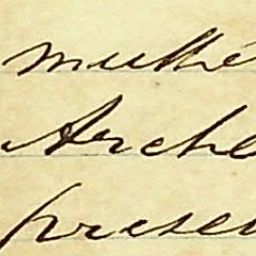 muthe
Arche
presen